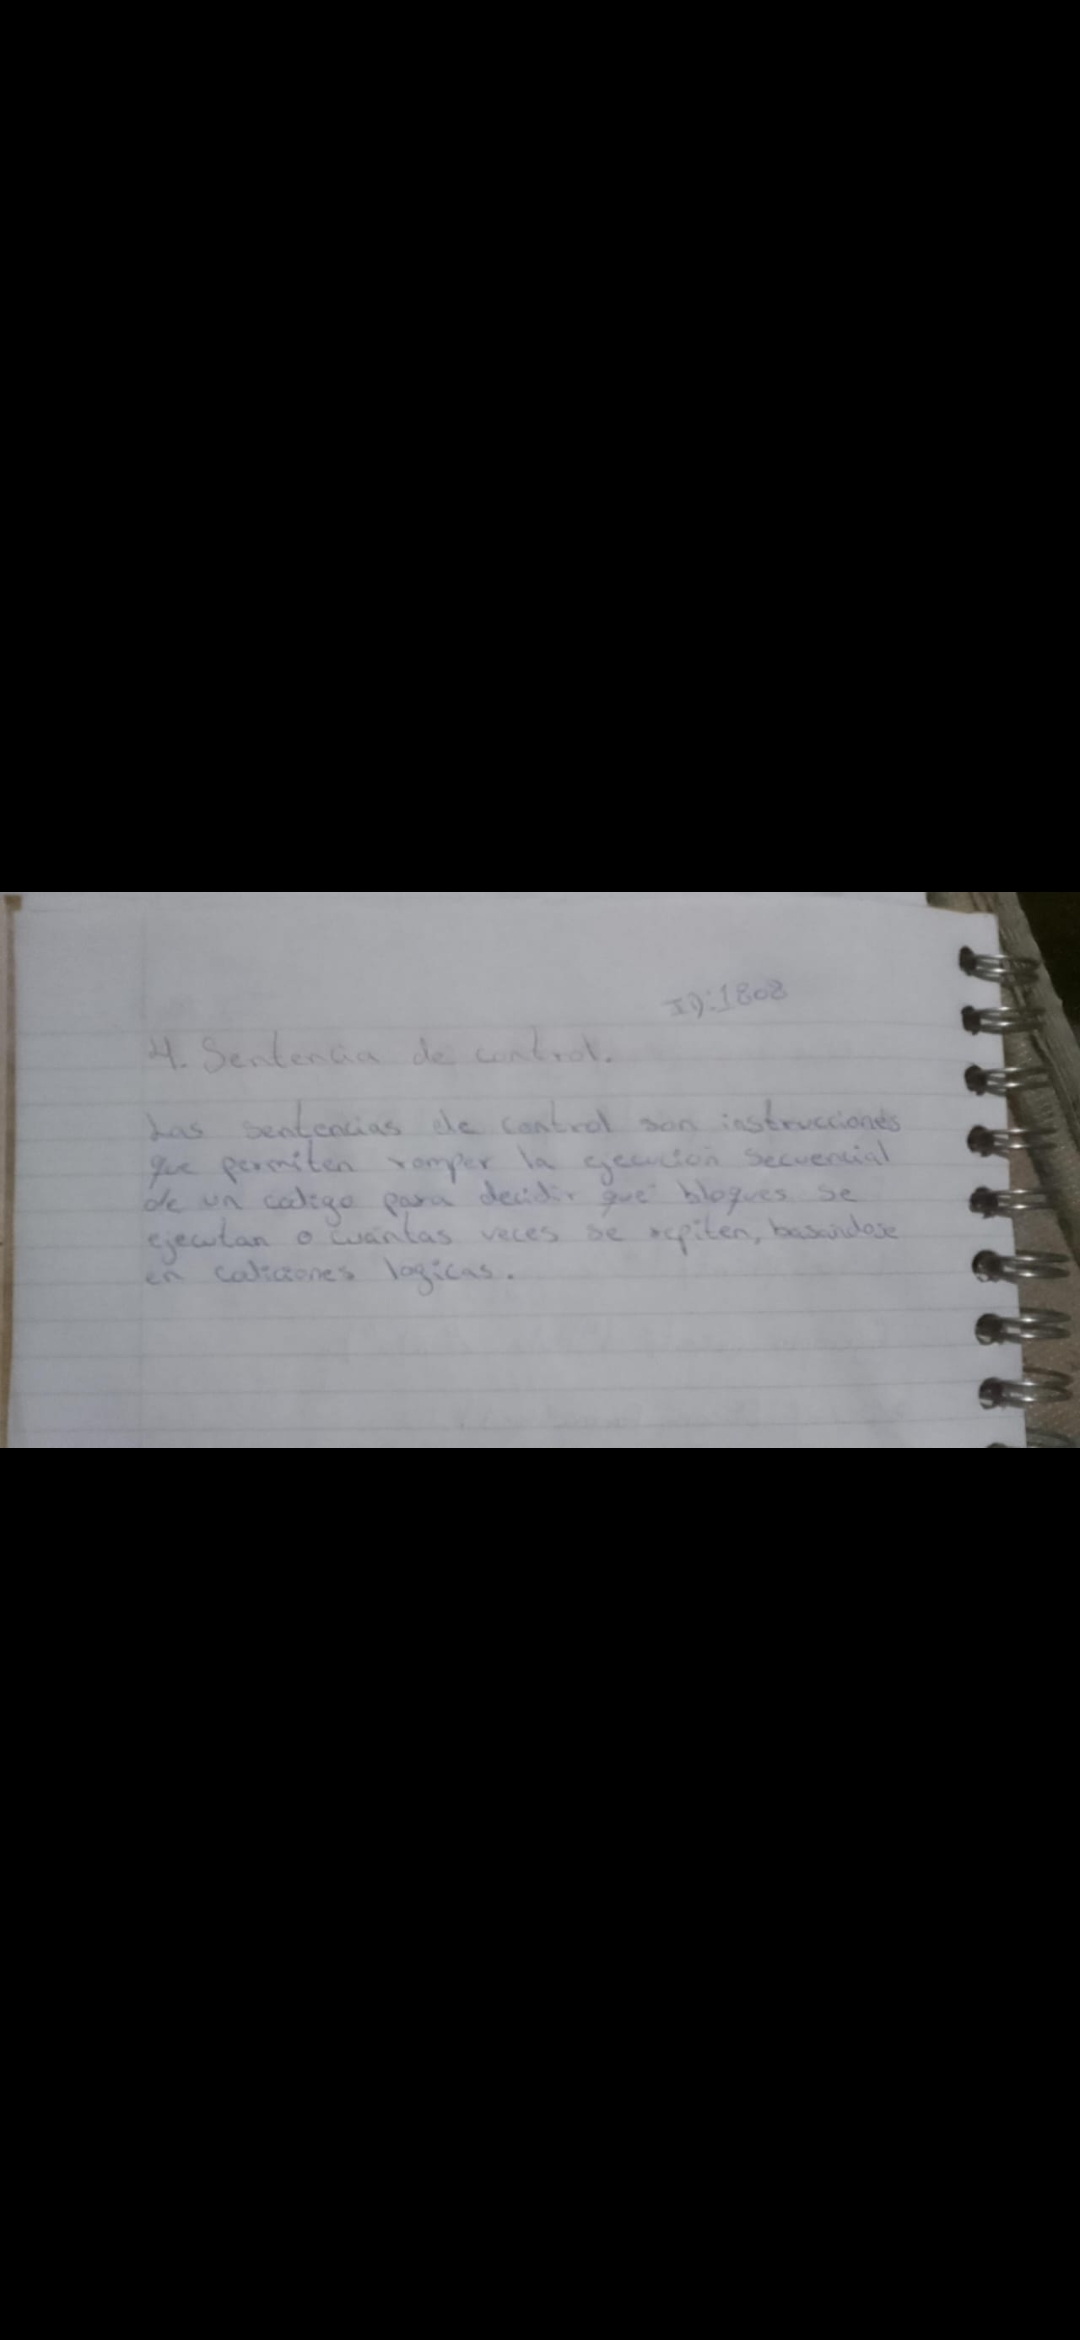 ID:1808
4. Sentencia de control.
Las sentencias de control son instrucciones
que permiten romper la ejecución secuencial
de un codigo para decidir que bloques se
ejecutan o cuántas veces se repiten, basandose
en codiciones logicas.